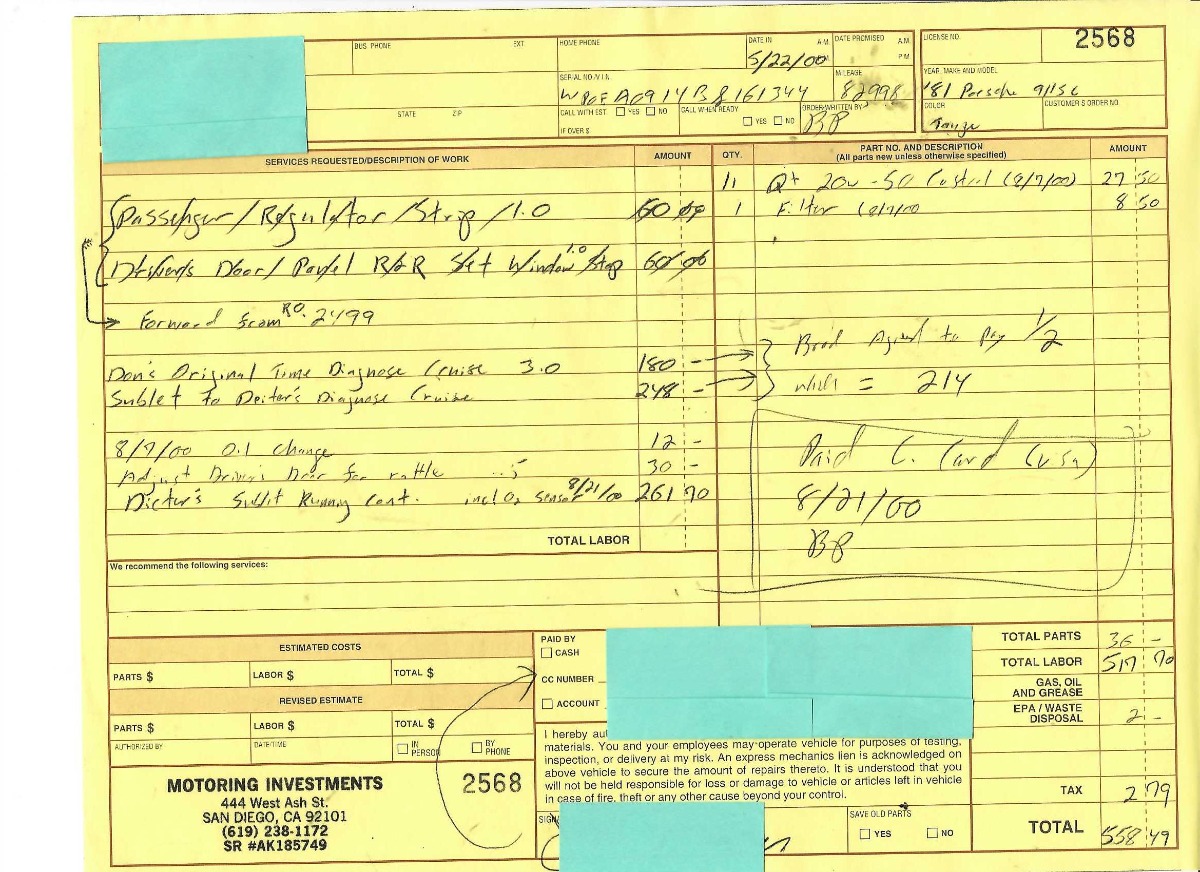 BUS. PHONE EXT HOME PHONE DATE IN A.M. DATE PROMISED A.M. LICENSE NO. 2568
5/22/00 P.M.
SERIAL NO./V.I.N. MILEAGE YEAR, MAKE AND MODEL
82998 '81 Porsche 911SC
STATE ZIP CALL WITH EST. YES NO CALL WHEN READY ORDER WRITTEN BY COLOR CUSTOMER'S ORDER NO.
IF OVER $ YES NO BP
SERVICES REQUESTED/DESCRIPTION OF WORK AMOUNT QTY. PART NO. AND DESCRIPTION AMOUNT
(All parts new unless otherwise specified)
11 Qt 20w-50 Castrol (8/7/00) 27 50
Passenger/Regulator/Strip/1.0 60 00 1 Filter (8/7/00 8 50
Door/Panel R&R Set Window Stop 1.0 60 00
Forward from RO. 2499
Brad Agreed to Pay 1/2
Don's Original Time Diagnose Cruise 3.0 180 -
Sublet to Deiter's Diagnose Cruise 248 - which = 214
8/7/00 Oil Change 12 - Paid C. Card (Visa)
Adjust Driver's Door for rattle .5 30 -
Dieter's Sublit Running cont. incl O2 sensor 8/21/00 261 70 8/21/00
TOTAL LABOR BP
We recommend the following services:
ESTIMATED COSTS PAID BY TOTAL PARTS 36 -
CASH
PARTS $ LABOR $ TOTAL $ CC NUMBER TOTAL LABOR 517 70
REVISED ESTIMATE ACCOUNT GAS, OIL AND GREASE
PARTS $ LABOR $ TOTAL $ EPA / WASTE DISPOSAL 2 -
AUTHORIZED BY DATE/TIME IN PERSON BY PHONE
I hereby
materials. You and your employees may operate vehicle for purposes of testing,
inspection, or delivery at my risk. An express mechanics lien is acknowledged on
above vehicle to secure the amount of repairs thereto. It is understood that you
will not be held responsible for loss or damage to vehicle or articles left in vehicle
in case of fire, theft or any other cause beyond your control.
MOTORING INVESTMENTS 2568
444 West Ash St.
SAN DIEGO, CA 92101
(619) 238-1172
SR #AK185749
TAX 2 79
SAVE OLD PARTS
YES NO
TOTAL 558 49